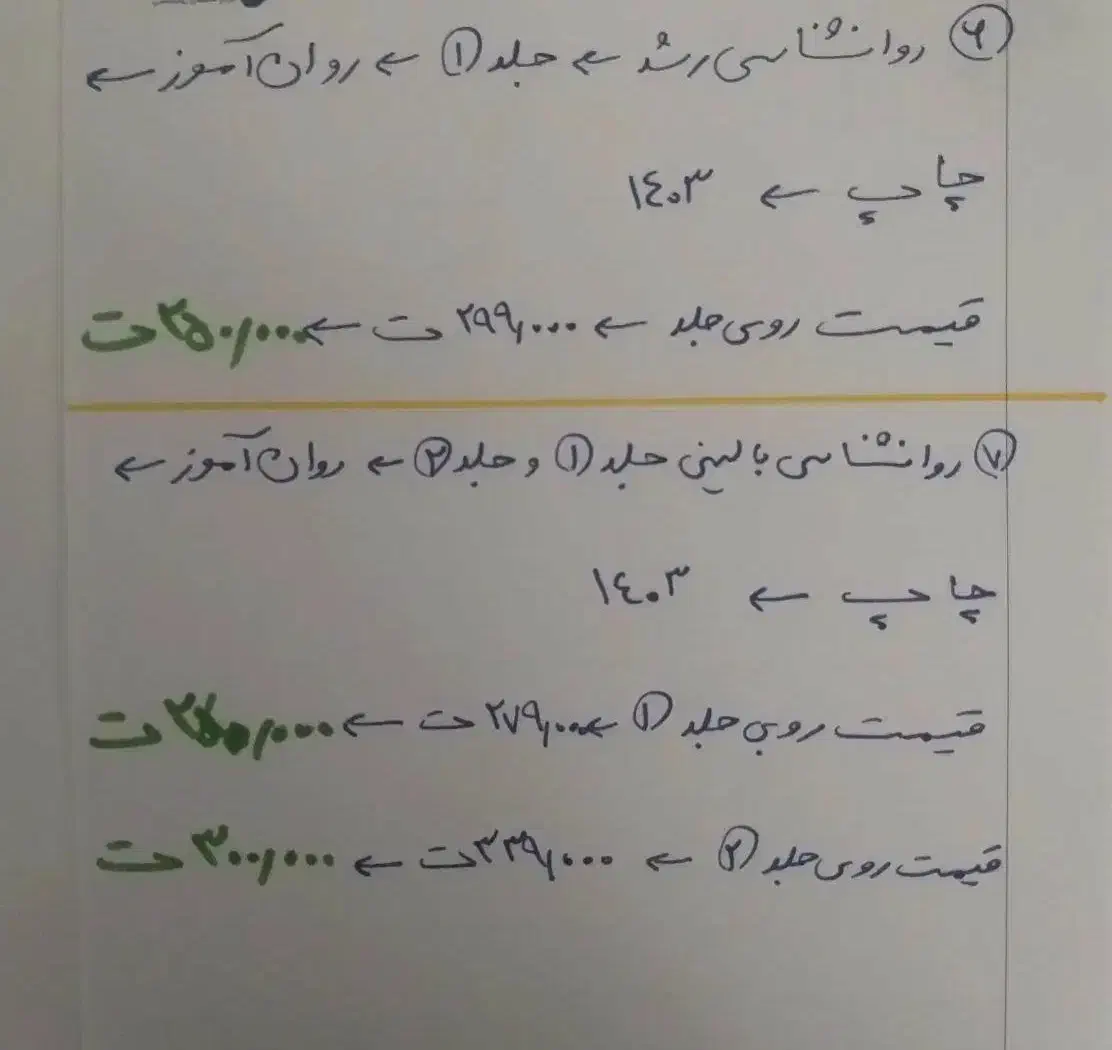 ۶ روانشناسی رشد ← جلد ۱ ← روان آموز ←
چاپ ← ۱۴۰۳
قیمت روی جلد ← ۲۹۹,۰۰۰ ت ← ۲۵۰,۰۰۰ ت
۷ روانشناسی بالینی جلد ۱ و جلد ۲ ← روان آموز ←
چاپ ← ۱۴۰۳
قیمت روی جلد ۱ ← ۲۷۹,۰۰۰ ت ← ,۰۰۰ ت
قیمت روی جلد ۲ ← ۳۳۹,۰۰۰ ت ← ۳۰۰,۰۰۰ ت